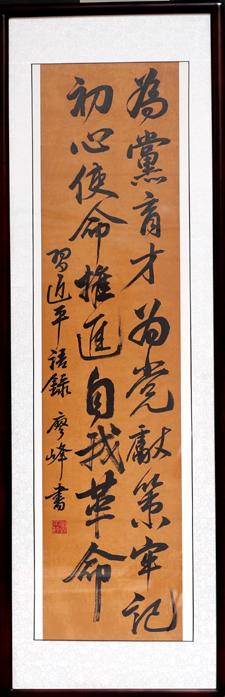 為黨育才为党獻策牢記
初心使命推進自我革命
習近平語錄 廖峰書